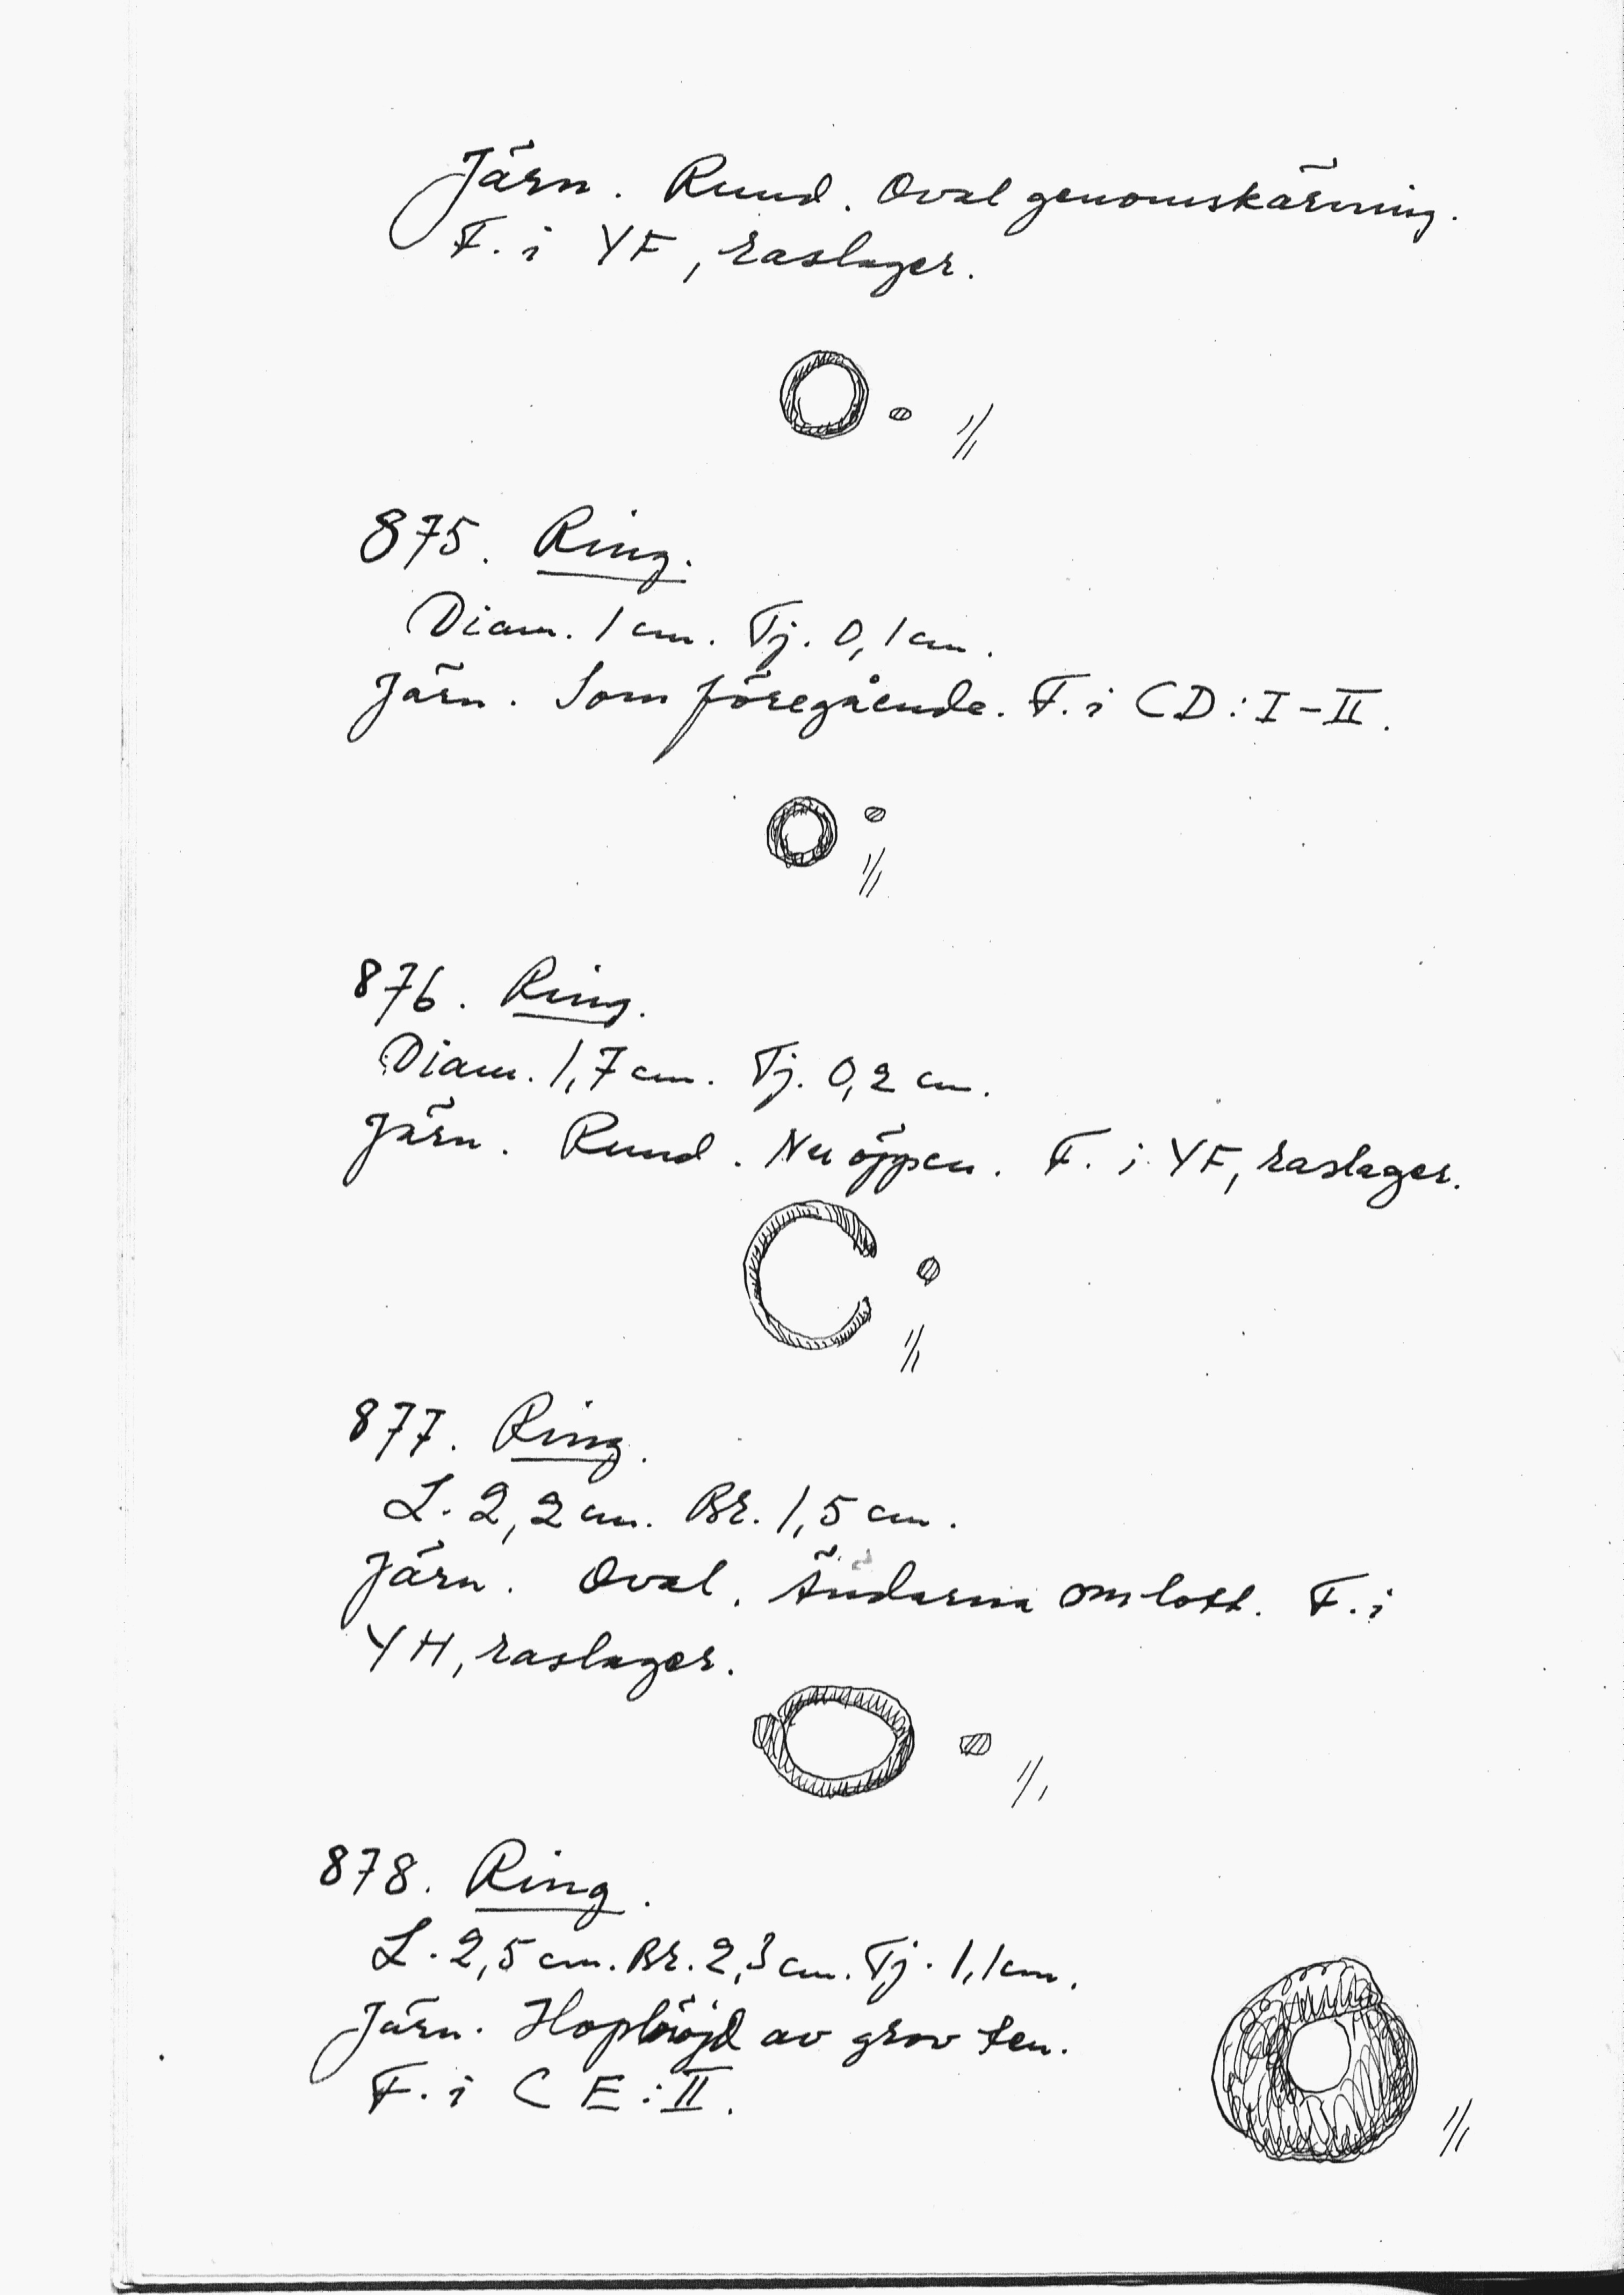 Järn. Rund. Oval genomskärning.
F. i YF, raslager.
1/1
875. Ring.
Diam. 1 cm. Tj. 0,1 cm.
Järn. Som föregående. F. i CD:I-II.
1/1
876. Ring.
Diam. 1,7 cm. Tj. 0,2 cm.
Järn. Rund. Nu öppen. F. i YF, raslager.
1/1
877. Ring.
L. 2,2 cm. Br. 1,5 cm.
Järn. Oval. Ändarna omlott. F. i
YH, raslager.
1/1
878. Ring.
L. 2,5 cm. Br. 2,3 cm. Tj. 1,1 cm.
Järn. Hopböjd av grov ten.
F. i CE:II.
1/1